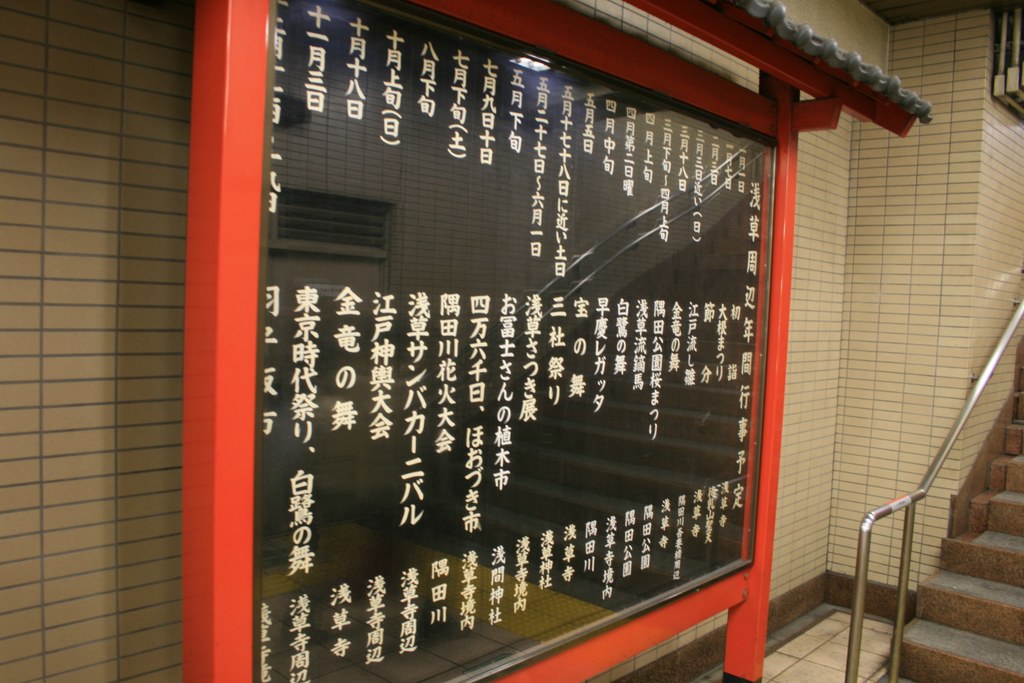 浅草周辺年間行事予定
月一日 初詣 浅草寺
一月七日 大根まつり
二月三日 節分 浅草寺
三月三日近い(日) 江戸流し雛 隅田川吾妻橋周辺
三月十八日 金竜の舞 浅草寺
三月下旬〜四月上旬 隅田公園桜まつり 隅田公園
四月上旬 浅草流鏑馬 隅田公園
四月第二日曜 白鷺の舞 浅草寺境内
四月中旬 早慶レガッタ 隅田川
五月五日 宝の舞 浅草寺
五月十七十八日に近い土日 三社祭り 浅草神社
五月二十七日〜六月一日 浅草さつき展 浅草寺境内
五月下旬 お冨士さんの植木市 浅間神社
七月九日十日 四万六千日、ほおづき市 浅草寺境内
七月下旬(土) 隅田川花火大会 隅田川
八月下旬 浅草サンバカーニバル 浅草寺周辺
十月上旬(日) 江戸神輿大会 浅草寺周辺
十月十八日 金竜の舞 浅草寺
十一月三日 東京時代祭り、白鷺の舞 浅草寺周辺